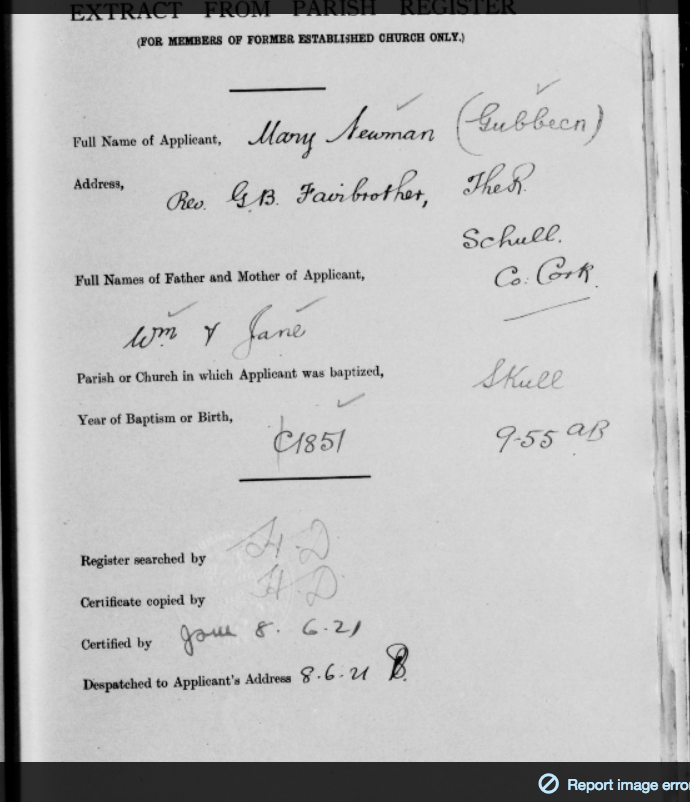 EXTRACT FROM PARISH REGISTER
(FOR MEMBERS OF FORMER ESTABLISHED CHURCH ONLY.)
Full Name of Applicant, Mary Newman (Gubbeen)
Address, Rev. G.B. Fairbrother, The R.
Schull.
Full Names of Father and Mother of Applicant, Co. Cork.
Wm & Jane
Parish or Church in which Applicant was baptized, Skull
Year of Baptism or Birth,
C1851 9-55 aB
Register searched by H.D.
Certificate copied by H.D.
Certified by 8. 6. 21
Despatched to Applicant's Address 8.6.21 B.
Report image erro